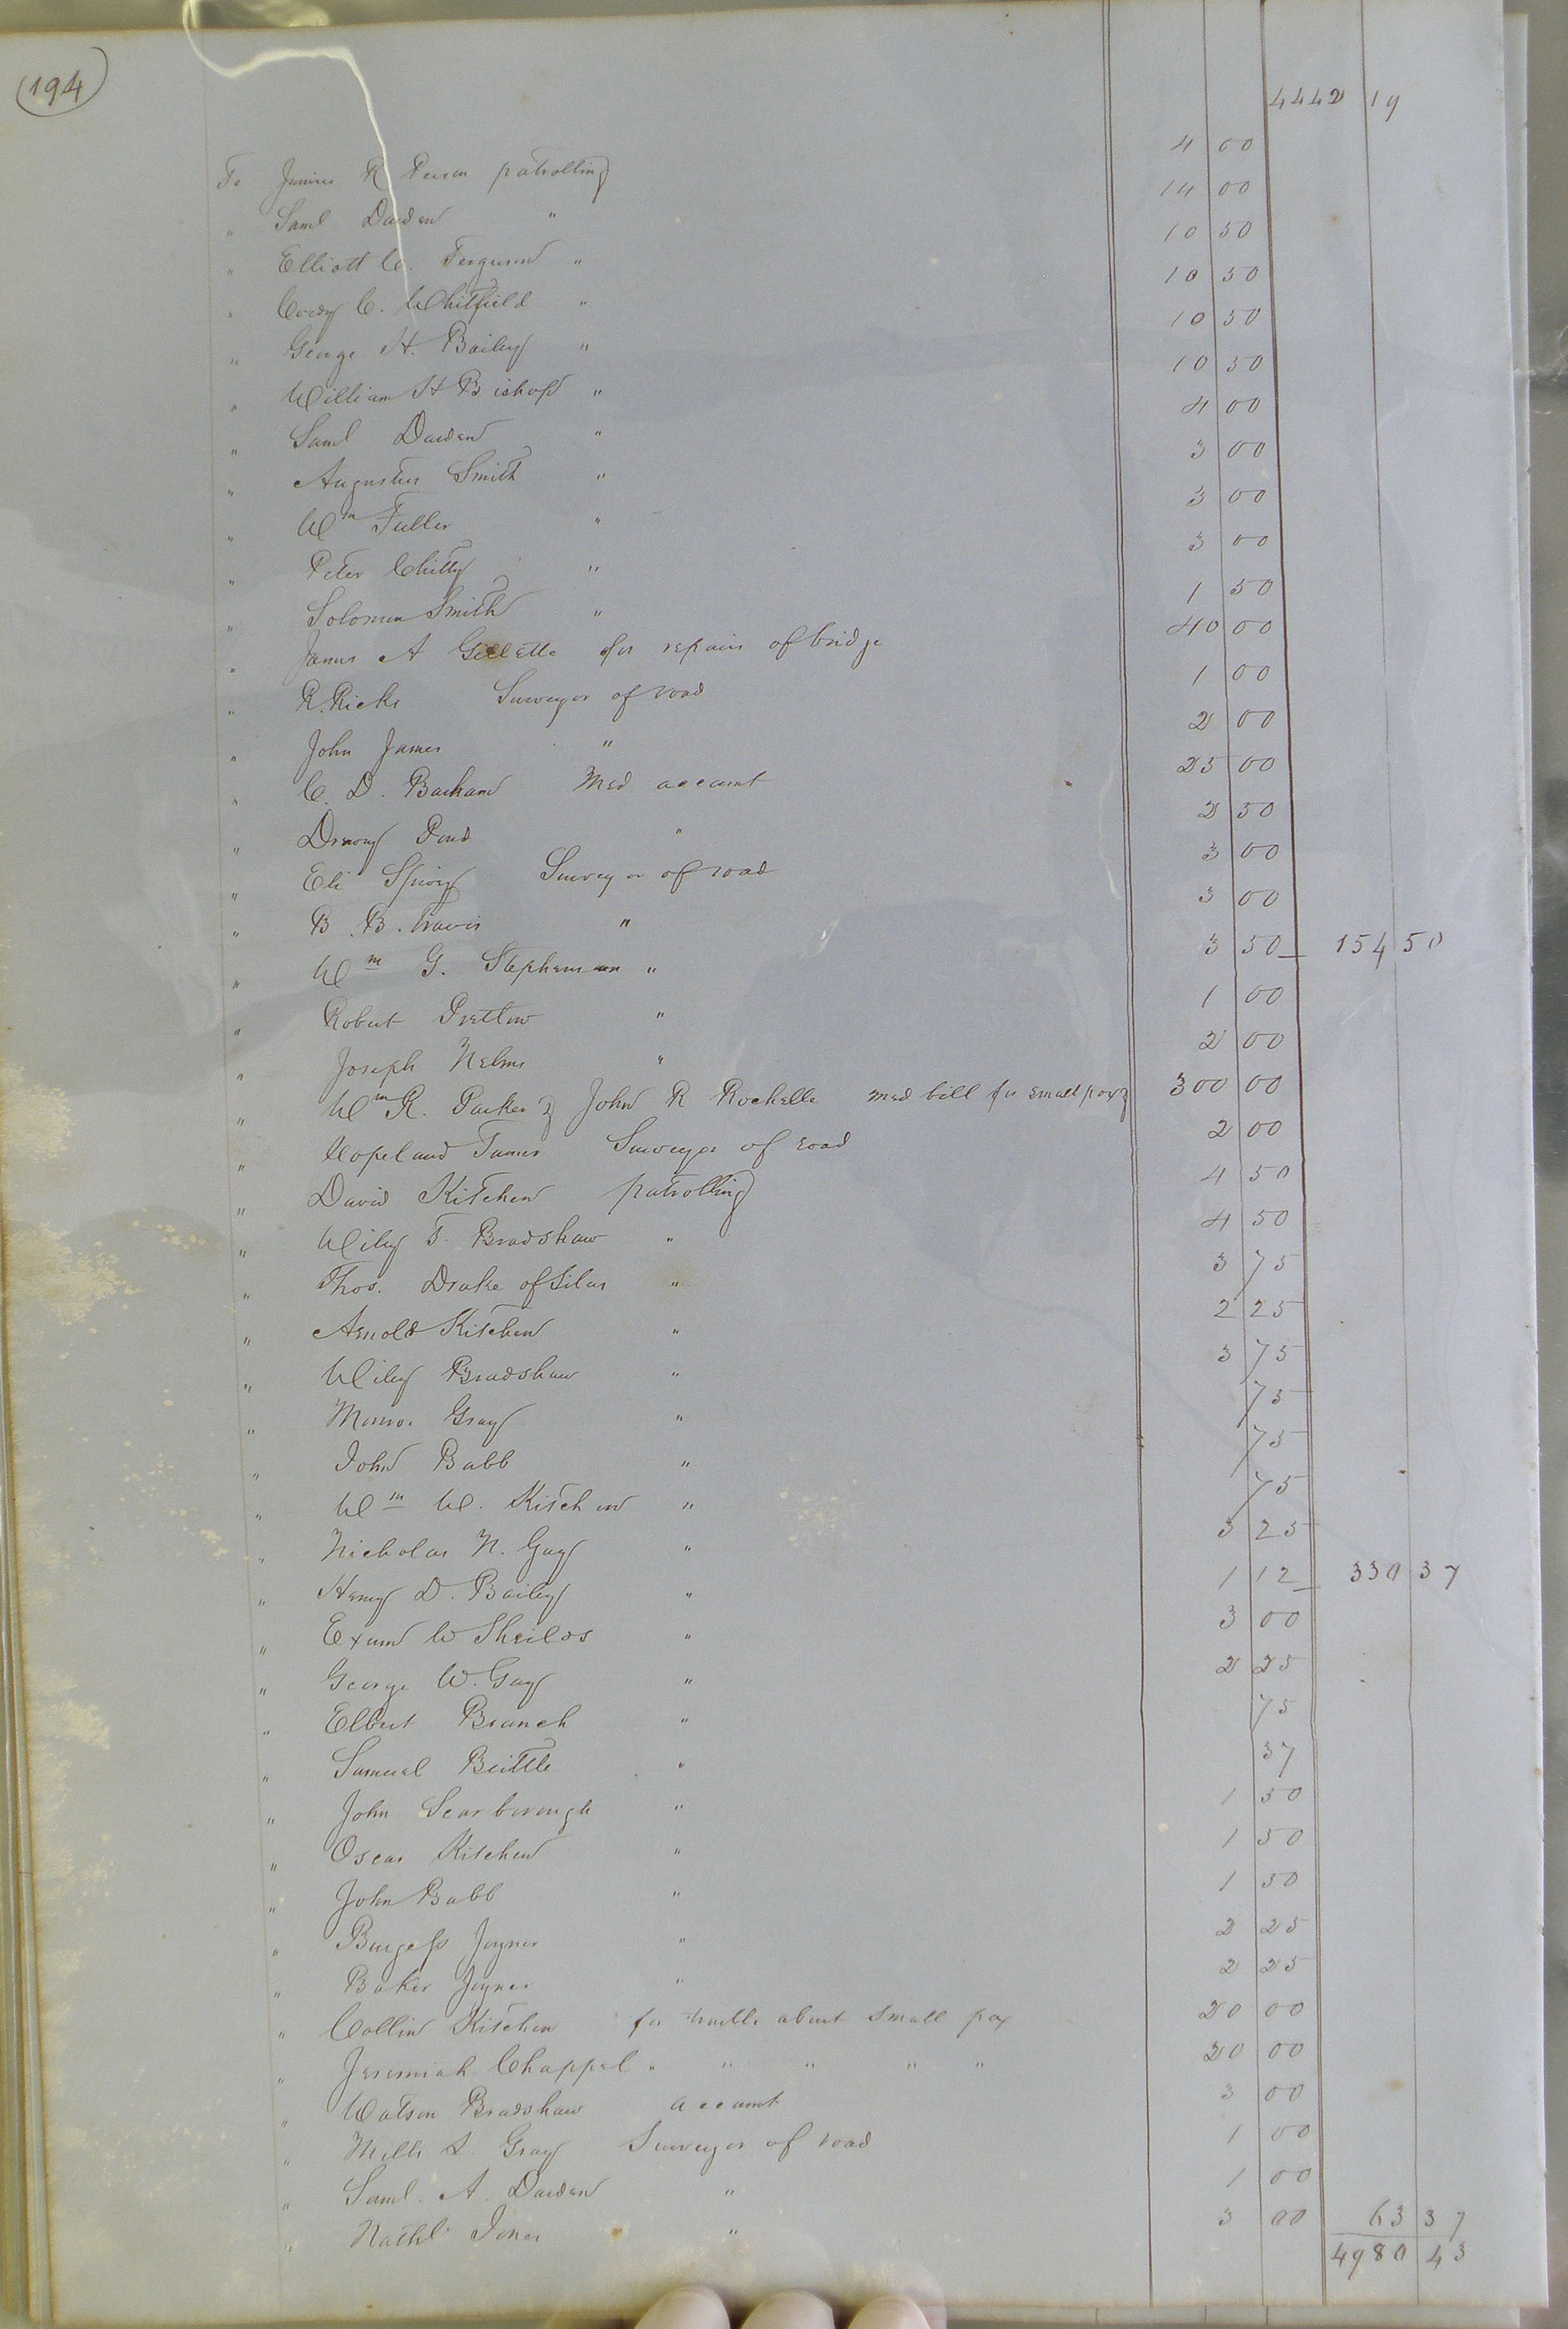 (194)
4442 19
To Junius R Person patrolling 4 00
" Saml Darden " 14 00
" Elliott C. Ferguson " 10 50
" C. Whitfield " 10 50
" George H. Bailey " 10 50
" William H Bishop " 10 50
" Saml Darden " 4 00
" Augustus Smith " 3 00
" Wm Fuller " 3 00
" Peter Chitty " 3 00
" Solomon Smith " 1 50
" James A Gillette for repairs of bridge 40 00
" R. Ricks Surveyor of road 1 00
" John James " 2 00
" C. D. Barham Med account 25 00
" Drewry Pond " 2 50
" Eli Spivey Surveyor of road 3 00
" B. B. Travis " 3 00
" Wm G. Stephenson " 3 50 154 50
" Robert Pretlow " 1 00
" Joseph Nelms " 2 00
" Wm R. Parker & John R Rochelle med bill for small pox 300 00
" Copeland Turner Surveyor of road 2 00
" David Kitchen patrolling 4 50
" Wiley T. Bradshaw " 4 50
" Thos. Drake of Silas " 3 75
" Arnold Kitchen " 2 25
" Wiley Bradshaw " 3 75
" Monroe Gray " 75
" John Babb " 75
" Wm W. Kitchen " 75
" Nicholas N. Gay " 3 25
" Henry D. Bailey " 1 12 330 37
" Exum W Sheilds " 3 00
" George W. Gay " 2 25
" Elbert Branch " 75
" Samuel Brittle " 37
" John Scarborough " 1 50
" Oscar Kitchen " 1 50
" John Babb " 1 50
" Burgess Joyner " 2 25
" Baker Joyner " 2 25
" Collin Kitchen for trouble about small pox 20 00
" Jeremiah Chappel " " " " " 20 00
" Watson Bradshaw account 3 00
" Mills S. Gray Surveyor of road 1 00
" Saml. A. Darden " 1 00
" Nathl Jones " 3 00 63 37
4980 43